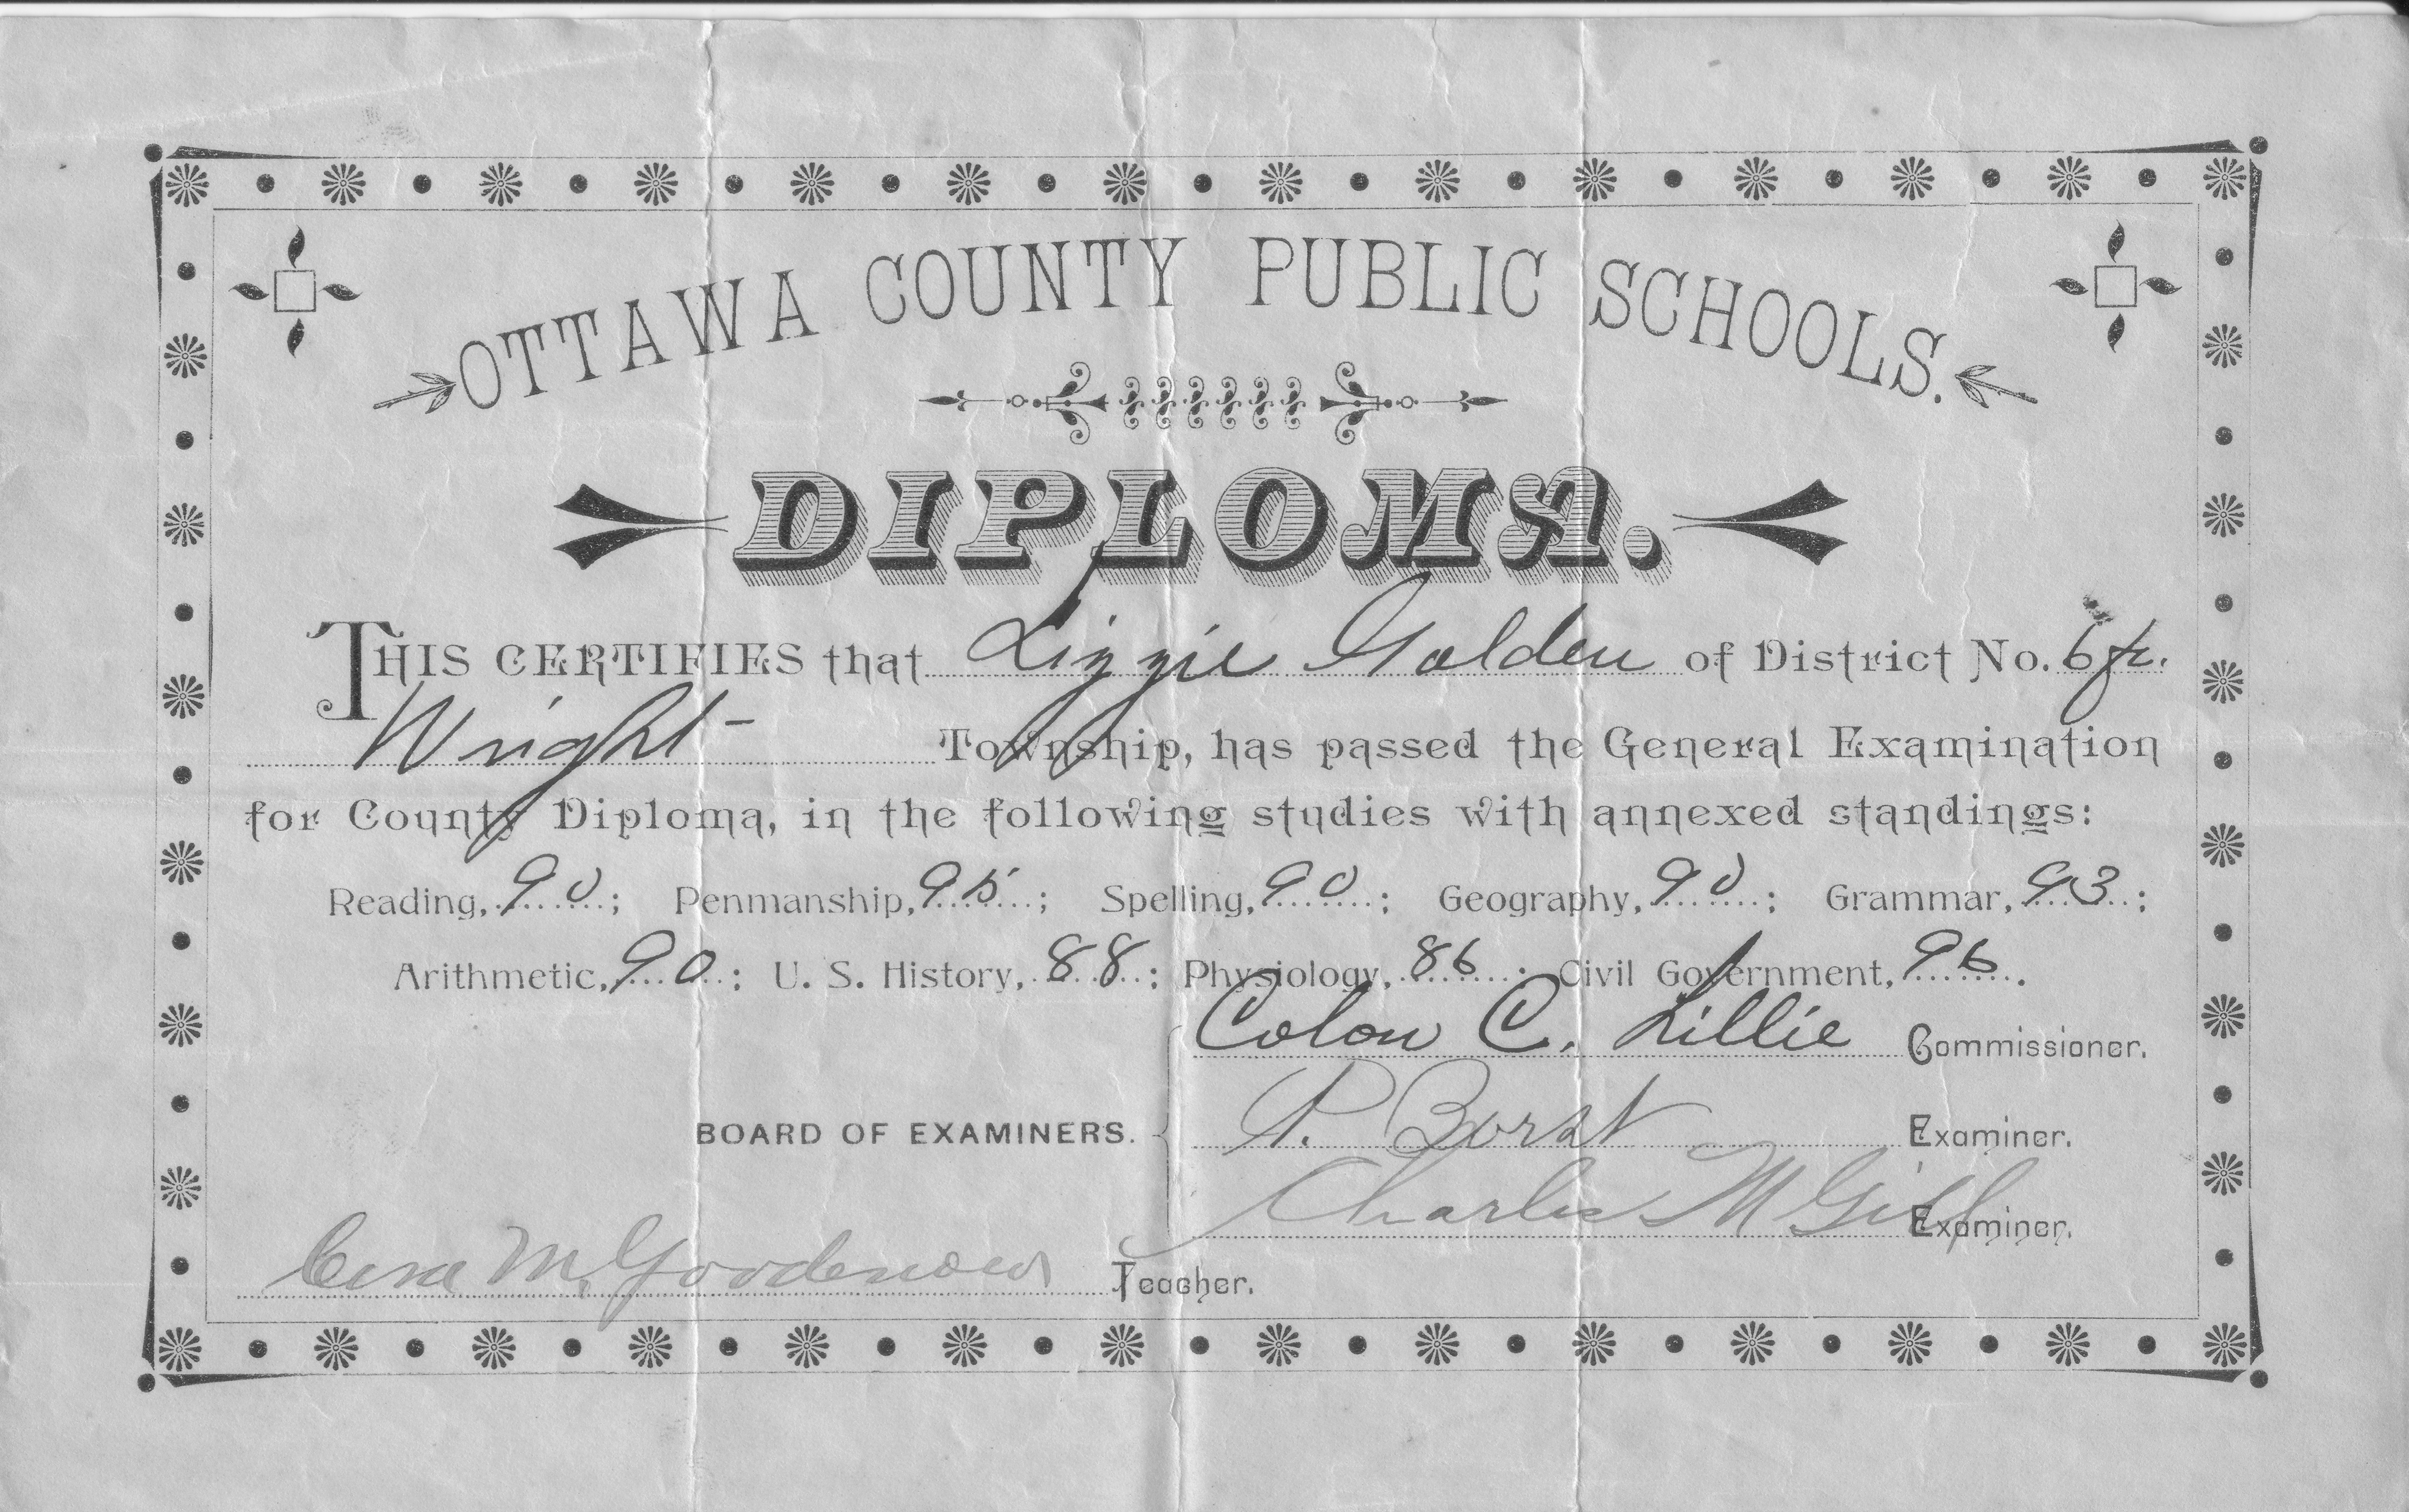 OTTAWA COUNTY PUBLIC SCHOOLS.
DIPLOMA.
THIS CERTIFIES that Lizzie Golden of District No. 6 fr.
Wright Township, has passed the General Examination
for County Diploma, in the following studies with annexed standings:
Reading, 90; Penmanship, 95; Spelling, 90; Geography, 90; Grammar, 93;
Arithmetic, 90; U. S. History, 88; Physiology, 86; Civil Government, 96.
Colon C. Lillie Commissioner.
BOARD OF EXAMINERS. P. Borst Examiner.
Charles M Gill Examiner.
M. Goodenow Teacher.